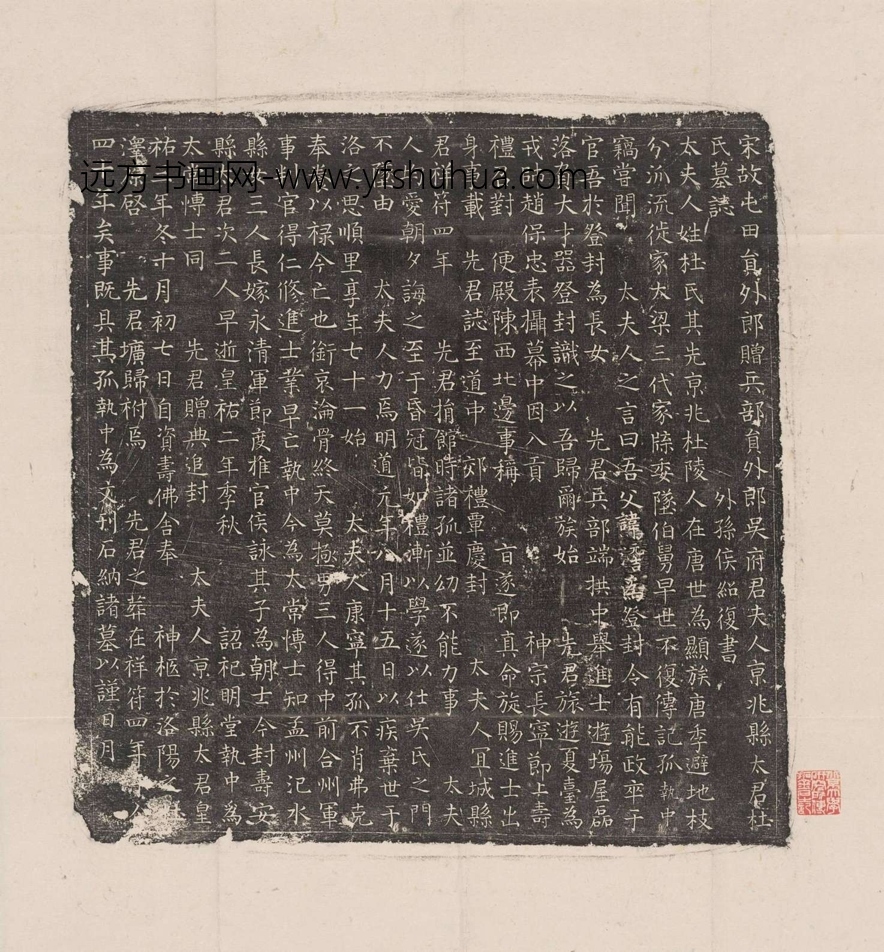 宋故屯田員外郎贈兵部員外郎吳府君夫人京兆縣太君杜
氏墓誌
外孫侯紹復書
太夫人姓杜氏其先京兆杜陵人在唐世為顯族唐季避地枝
分派流從家大梁三代家牒委墜伯舅早世不復傳記孤執中
竊嘗聞太夫人之言曰吾父諱登封令有能政卒于
官吾於登封為長女先君兵部端拱中舉進士遊場屋磊
落大才器登封識之以吾歸爾族始先君旅遊夏臺為
戎趙保忠表攝幕中因入貢神宗長寧節上壽
禮對便殿陳西北邊事稱旨遂即真命旋賜進士出
身載先君誌至道中郊禮覃慶封太夫人冝城縣
君祥符四年先君捐館時諸孤並幼不能力事太夫
人愛朝夕誨之至于昏冠皆如禮漸以學遂以仕吳氏之門
不由太夫人力焉明道元年八月十五日以疾棄世于
洛思順里享年七十一始太夫人康寧其孤不肖弗克
奉以祿今亡也銜哀淪骨終天莫極男三人得中前合州軍
事官得仁修進士業早亡執中今為太常博士知孟州汜水
縣三人長嫁永清軍節度推官侯詠其子為朝士今封壽安
縣君次二人早逝皇祐二年季秋詔祀明堂執中為
太博士同先君贈典追封太夫人京兆縣太君皇
祐年冬十月初七日自資壽佛舍奉神柩於洛陽之
澤啓先君壙歸祔焉先君之葬在祥符四年
四十年矣事既具其孤執中為文刊石納諸墓以謹日月
远方书画网-www.yfshuhua.com